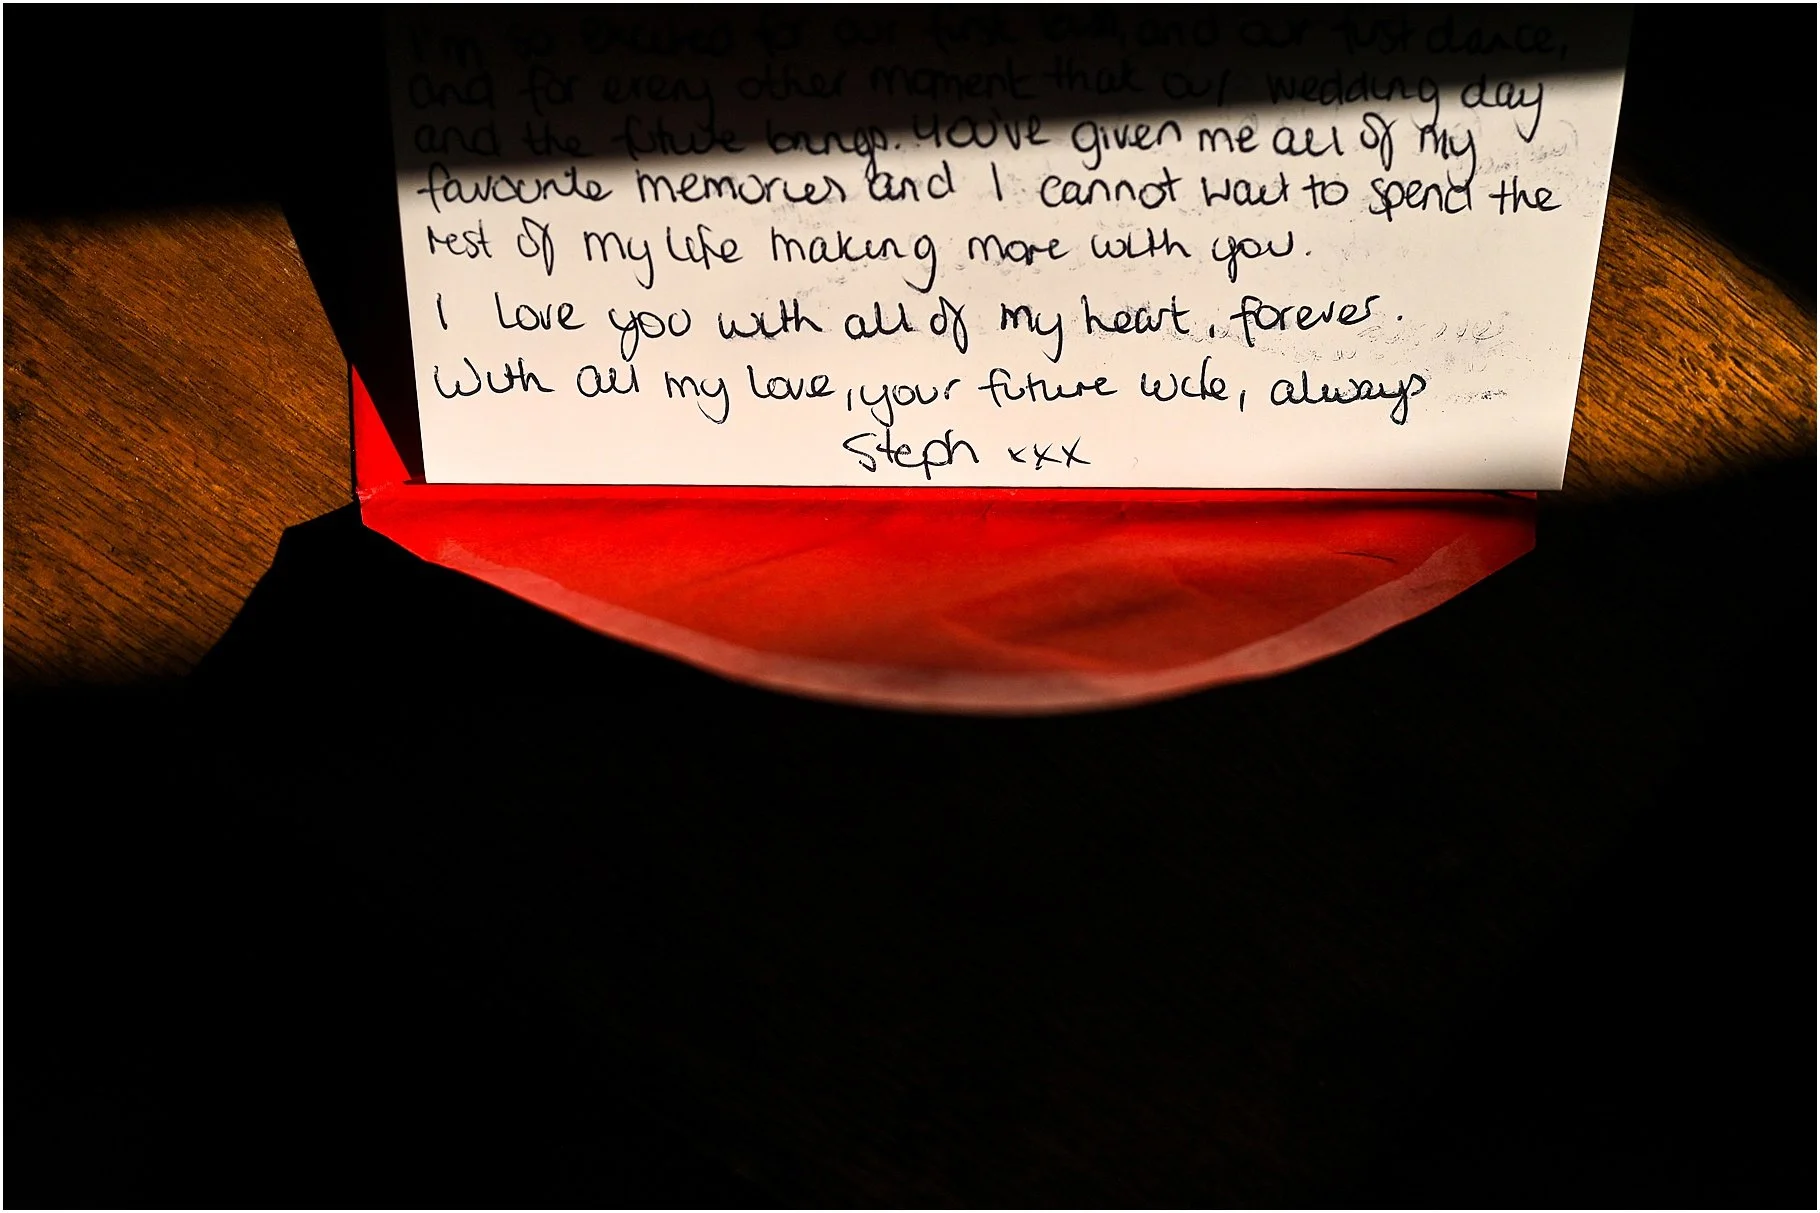 I'm so excited for our first kiss, and our first dance,
and for every other moment that our wedding day
and the future brings. You've given me all of my
favourite memories and I cannot wait to spend the
rest of my life making more with you.
I love you with all of my heart, forever.
With all my love, your future wife, always
Steph xxx